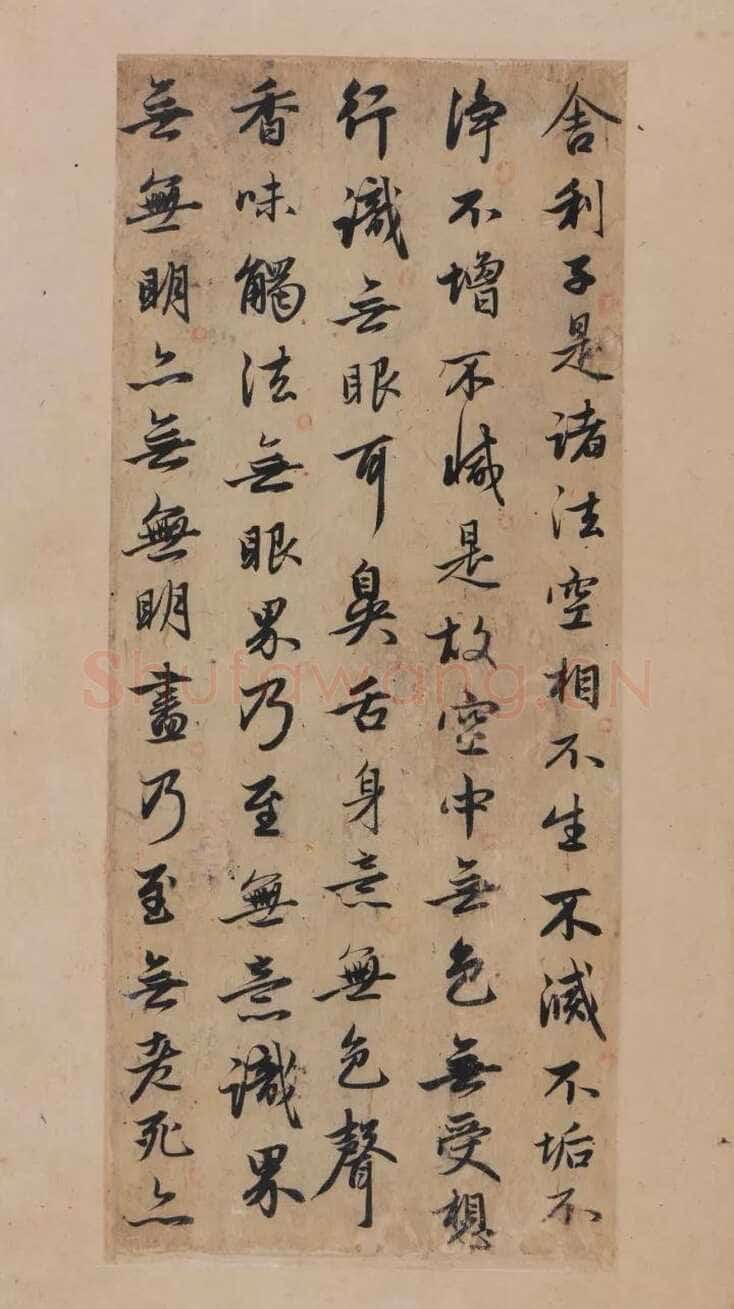 舍利子是诸法空相不生不滅不垢不
淨不增不減是故空中無色無受想
行識無眼耳鼻舌身意無色聲
香味觸法無眼界乃至無意識界
無無明亦無無明盡乃至無老死亦
Shufawang.CN